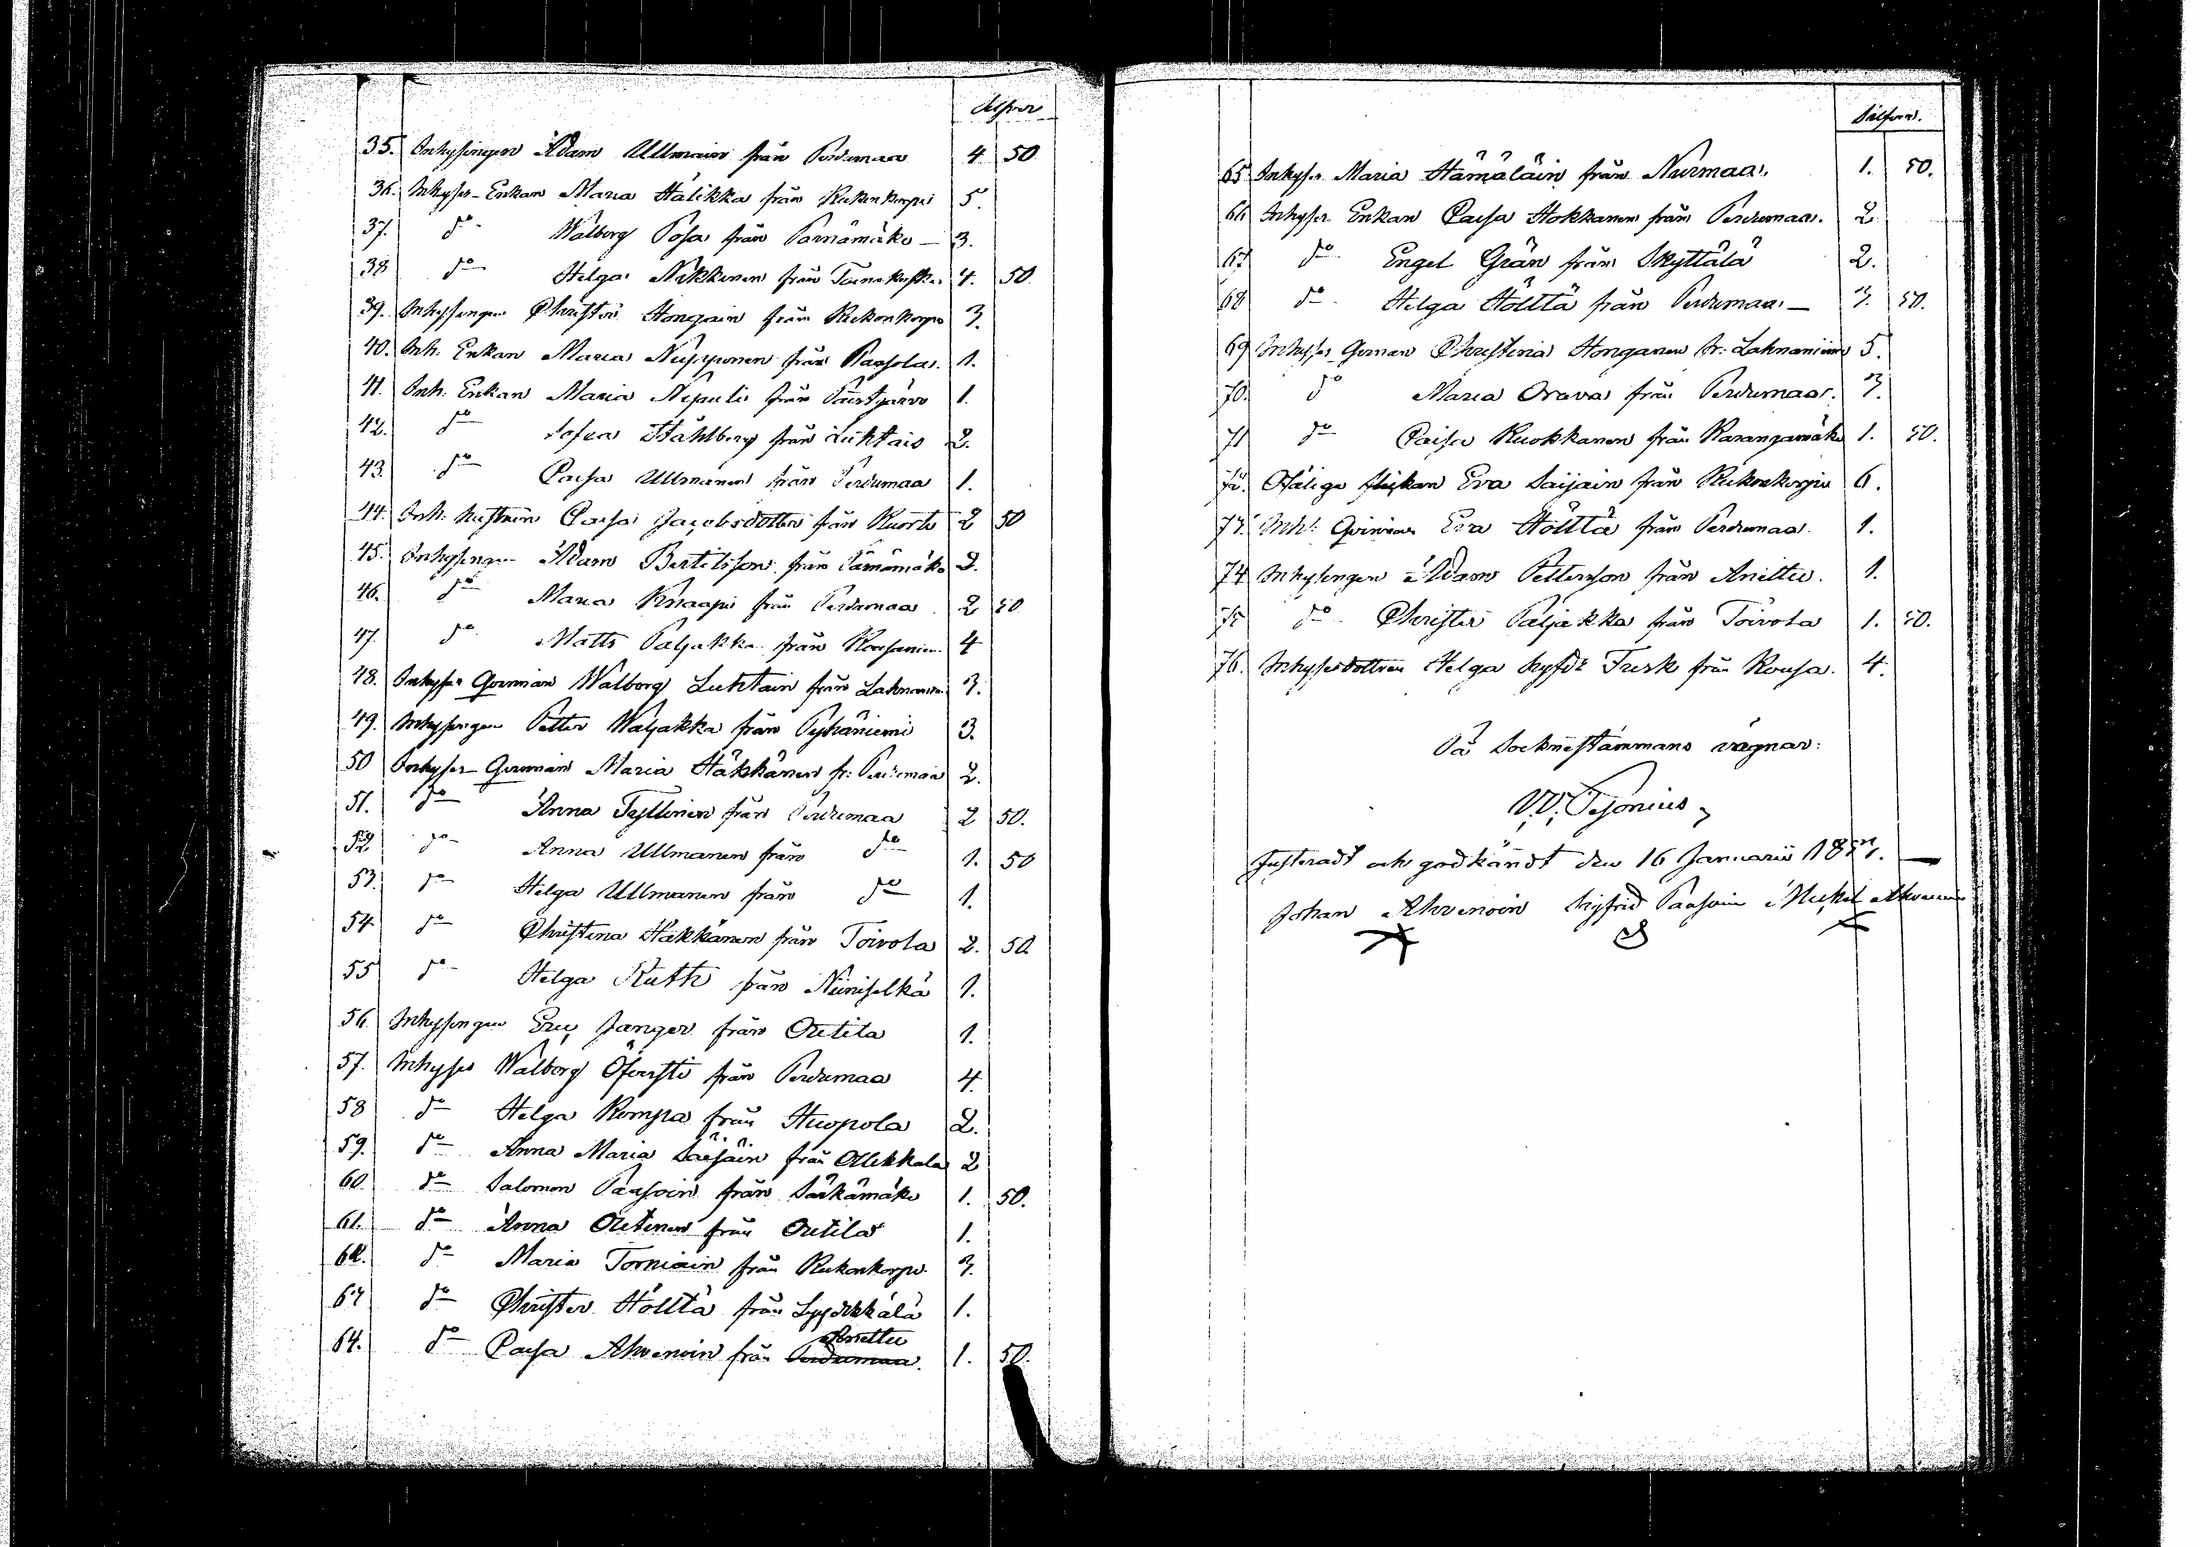 Silfver
35. Inhysingen Adam Ullmain från Perdumaa 4 50
36. Inhyses-Enkan Maria Hälikka från Kukonkorpi 5.
37. do Walborg Posa från Parnamäki — 3.
38 do Helga Nikkinen från 4. 50
39. Inhysingen Christer Hongain från Kukonkorpi 3.
40. Inh. Enkan Maria Nupponen från Paasola. 1.
41. Inh. Enkan Maria Nepuli från Päistjärvi 1.
42. do Sofia Ståhlberg från Luhtais 2.
43. do Caisa Ullmanen från Perdumaa 1.
44. Inh. hustrun Caisa Jacobsdotter från Kuorti 2 50
45. Inhysingen Adam Bertilsson från Pärnämäki 2.
46. do Maria Knaapi från Perdumaa 2 50
47. do Matts Paljakka från 4
48. Inhyses Qvinnan Walborg Luhtain från Lahnaniemi 3.
49. Inhysingen Petter Waljakka från Pyhäniemi 3.
50 Inhyses-Qvinnan Maria Häkkänen fr: Perdumaa 2.
51. do Anna Tyllinen från Perdumaa 2 50.
52 do Anna Ullmanen från do 1. 50
53. do Helga Ullmanen från do 1.
54 do Christina Häkkänen från Toivola 2. 50.
55 do Helga Ruth från Niiniselkä 1.
56. Inhysingen Eric Janger från Outila 1.
57. Inhyses Walborg Öfversti från Perdumaa 4.
58 do Helga Kompa från Huopola 2.
59. do Anna Maria Säijäin från Ollikkala 2
60. do Salomon Paasoin från Särkämäki 1. 50.
61. do Anna Outinen från Outila 1.
62. do Maria Torniain från Kukonkorpi 3.
63 do Christer Hölttä från Lyydikkälä 1.
64. do Caisa Ahvenoin från Perdumaa. Anittu 1. 50.
Silfver.
65 Inhyses Maria Hämäläin från Nurmaa. 1. 50.
66 Inhyses Enkan Caisa Hokkanen från Perdumaa. 2
67 do Engel Grän från Skyttälä 2.
68 do Helga Hölttä från Perdumaa — 3. 50.
69 Inhyses Qvinnan Christina Honganen fr: Lahnaniemi 5.
70. do Maria Orava från Perdumaa. 3.
71 do Caisa Ruokkanen från Karangamäki 1. 50.
72. Ofäliga flickan Eva Saijain från Kukonkorpi 6.
73. Inh: Qvinnan Eva Hölttä från Perdumaa 1.
74 Inhysingen Adam Pettersson från Anittu. 1.
75 do Christer Paljakka från Toivola 1. 50.
76. Inhysesdottren Helga Sigfdr Tusk från Kousa. 4.
På Socknestämmans vägnar:
W. Pesonius
Justeradt och godkändt den 16 Januarii
Johan Ahvenoin Sigfrid Paasoin Michel Ahvenain